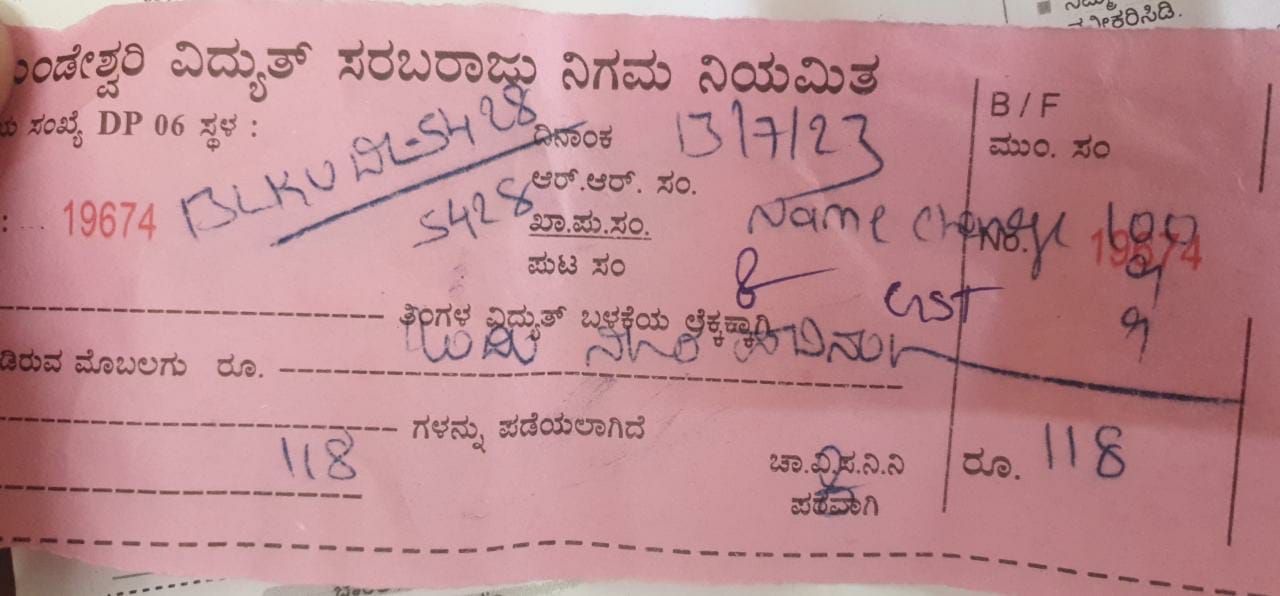 ಸ್ವೀಕರಿಸಿಡಿ.
ುಂಡೇಶ್ವರಿ ವಿದ್ಯುತ್ ಸರಬರಾಜು ನಿಗಮ ನಿಯಮಿತ
B / F
ಸಂಖ್ಯೆ DP 06 ಸ್ಥಳ :
ದಿನಾಂಕ 13/7/23
ಮುಂ. ಸಂ
ಆರ್.ಆರ್. ಸಂ.
: 19674 5428
ಖಾ.ಪು.ಸಂ. Name change 100
ನಂ. 19674
ಪುಟ ಸಂ
8 GST 9
9
ತಿಂಗಳ ವಿದ್ಯುತ್ ಬಳಕೆಯ ಲೆಕ್ಕಕ್ಕಾಗಿ
ಡಿರುವ ಮೊಬಲಗು ರೂ.
ಗಳನ್ನು ಪಡೆಯಲಾಗಿದೆ
118
ಚಾ.ವಿ.ಸ.ನಿ.ನಿ ರೂ. 118
ಪರವಾಗಿ